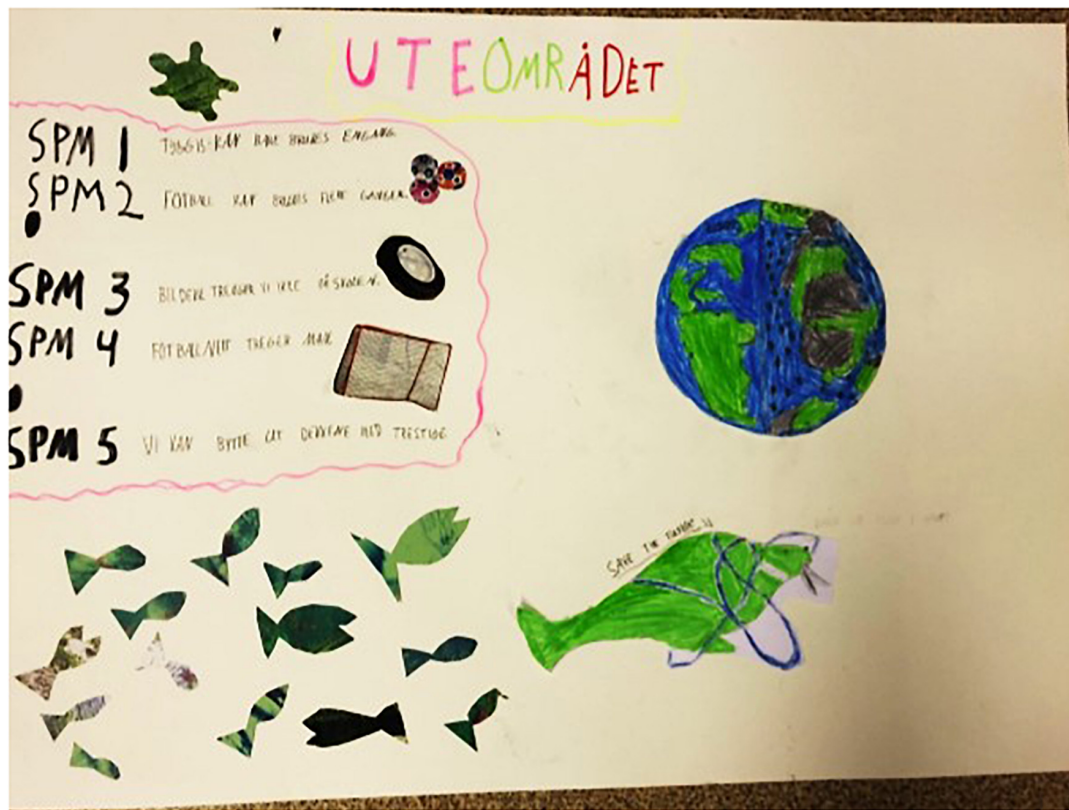 UTEOMRÅDET
SPM 1 TYGGIS KAN BARE BRUKES ENGANG
SPM 2 FOTBALL KAN BRUKES FLERE GANGER.
SPM 3 BILDEKK TRENGER VI IKKE PÅ SKOLEN.
SPM 4 FOTBALLNETT TRENGER MAN
SPM 5 VI KAN BYTTE UT DEKKENE MED
SAVE THE